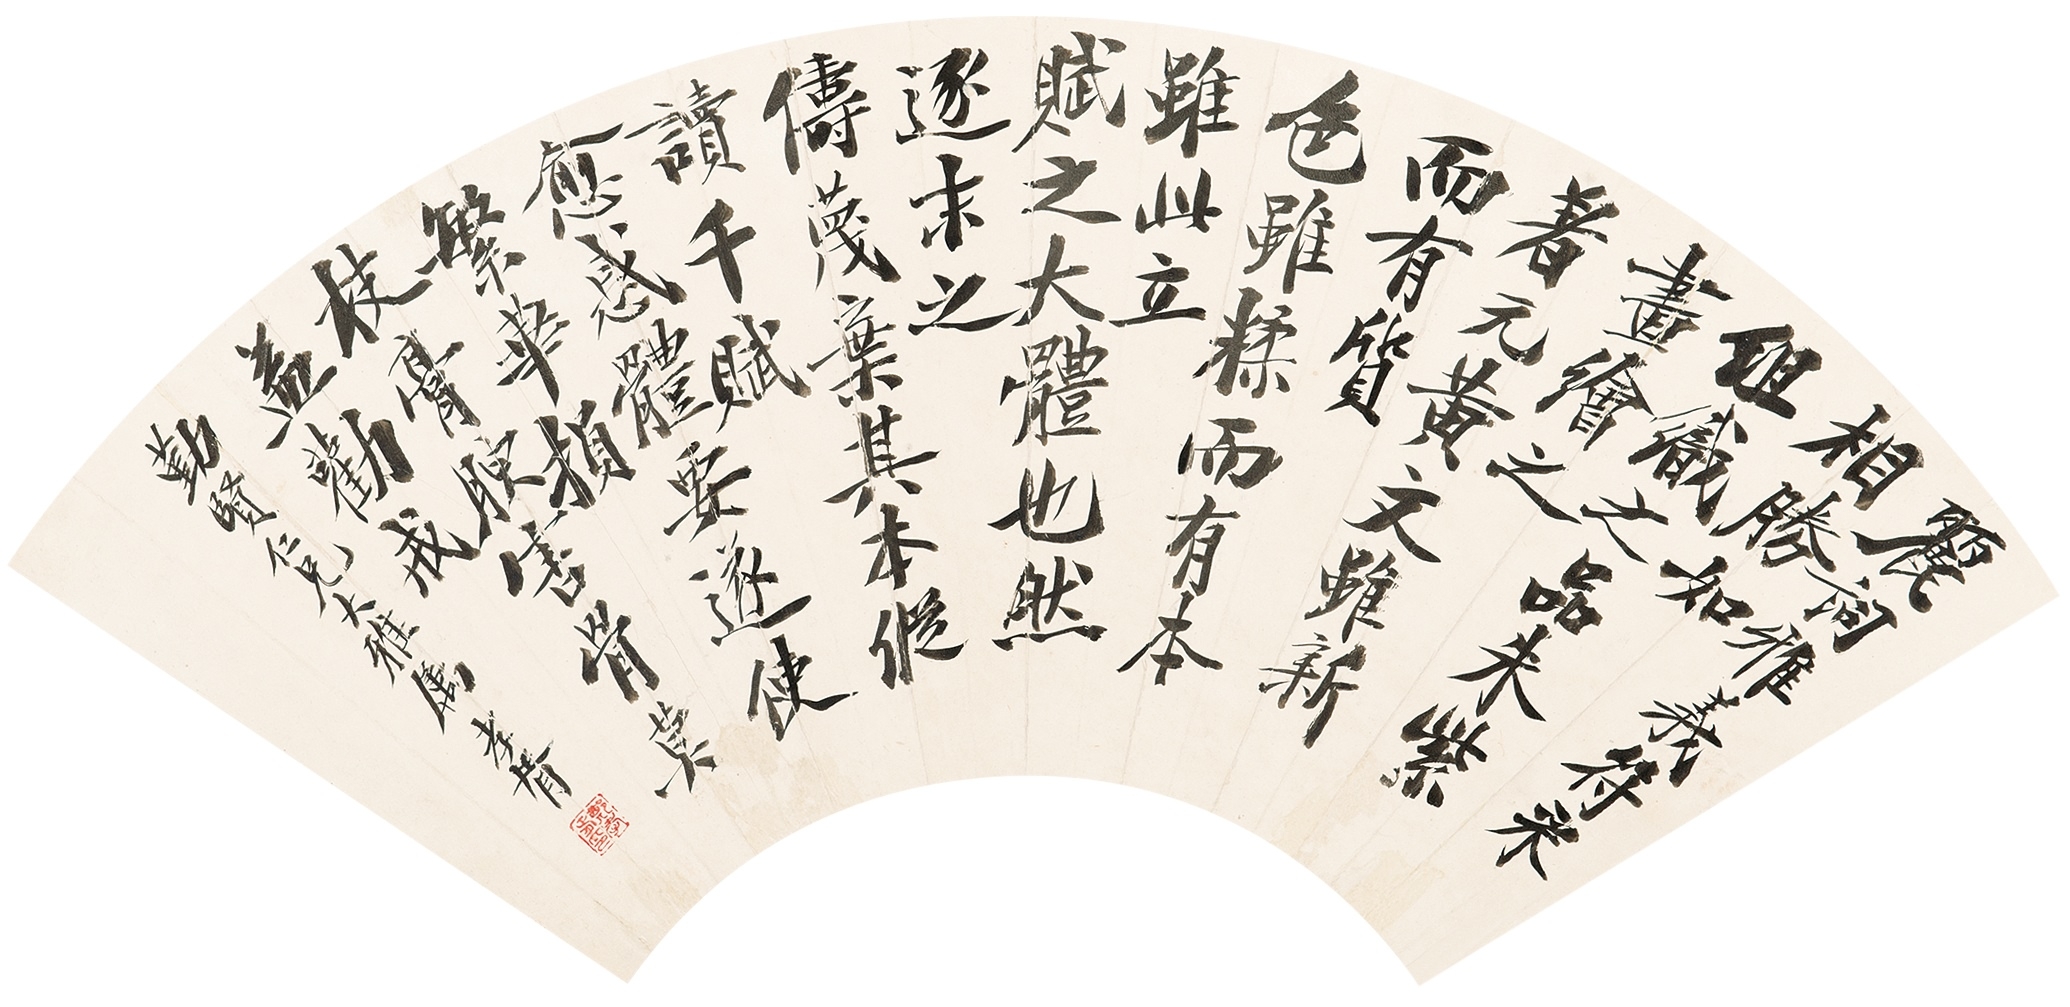 麗詞雅義符采
相勝如
組織之品朱紫
畫繪之
者元黃文雖新
而有質
色雖糅而有本
雖此立
賦之大體也然
逐末之
儔蔑棄其本從
讀千賦
愈惑體要遂使
繁華損
枝膏腴害骨莫
益勸戒
勤賢仁兄大雅屬 孝胥